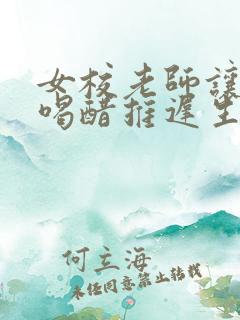 女校老師讓
喝醋推遲生
何立海
未经同意禁止转载